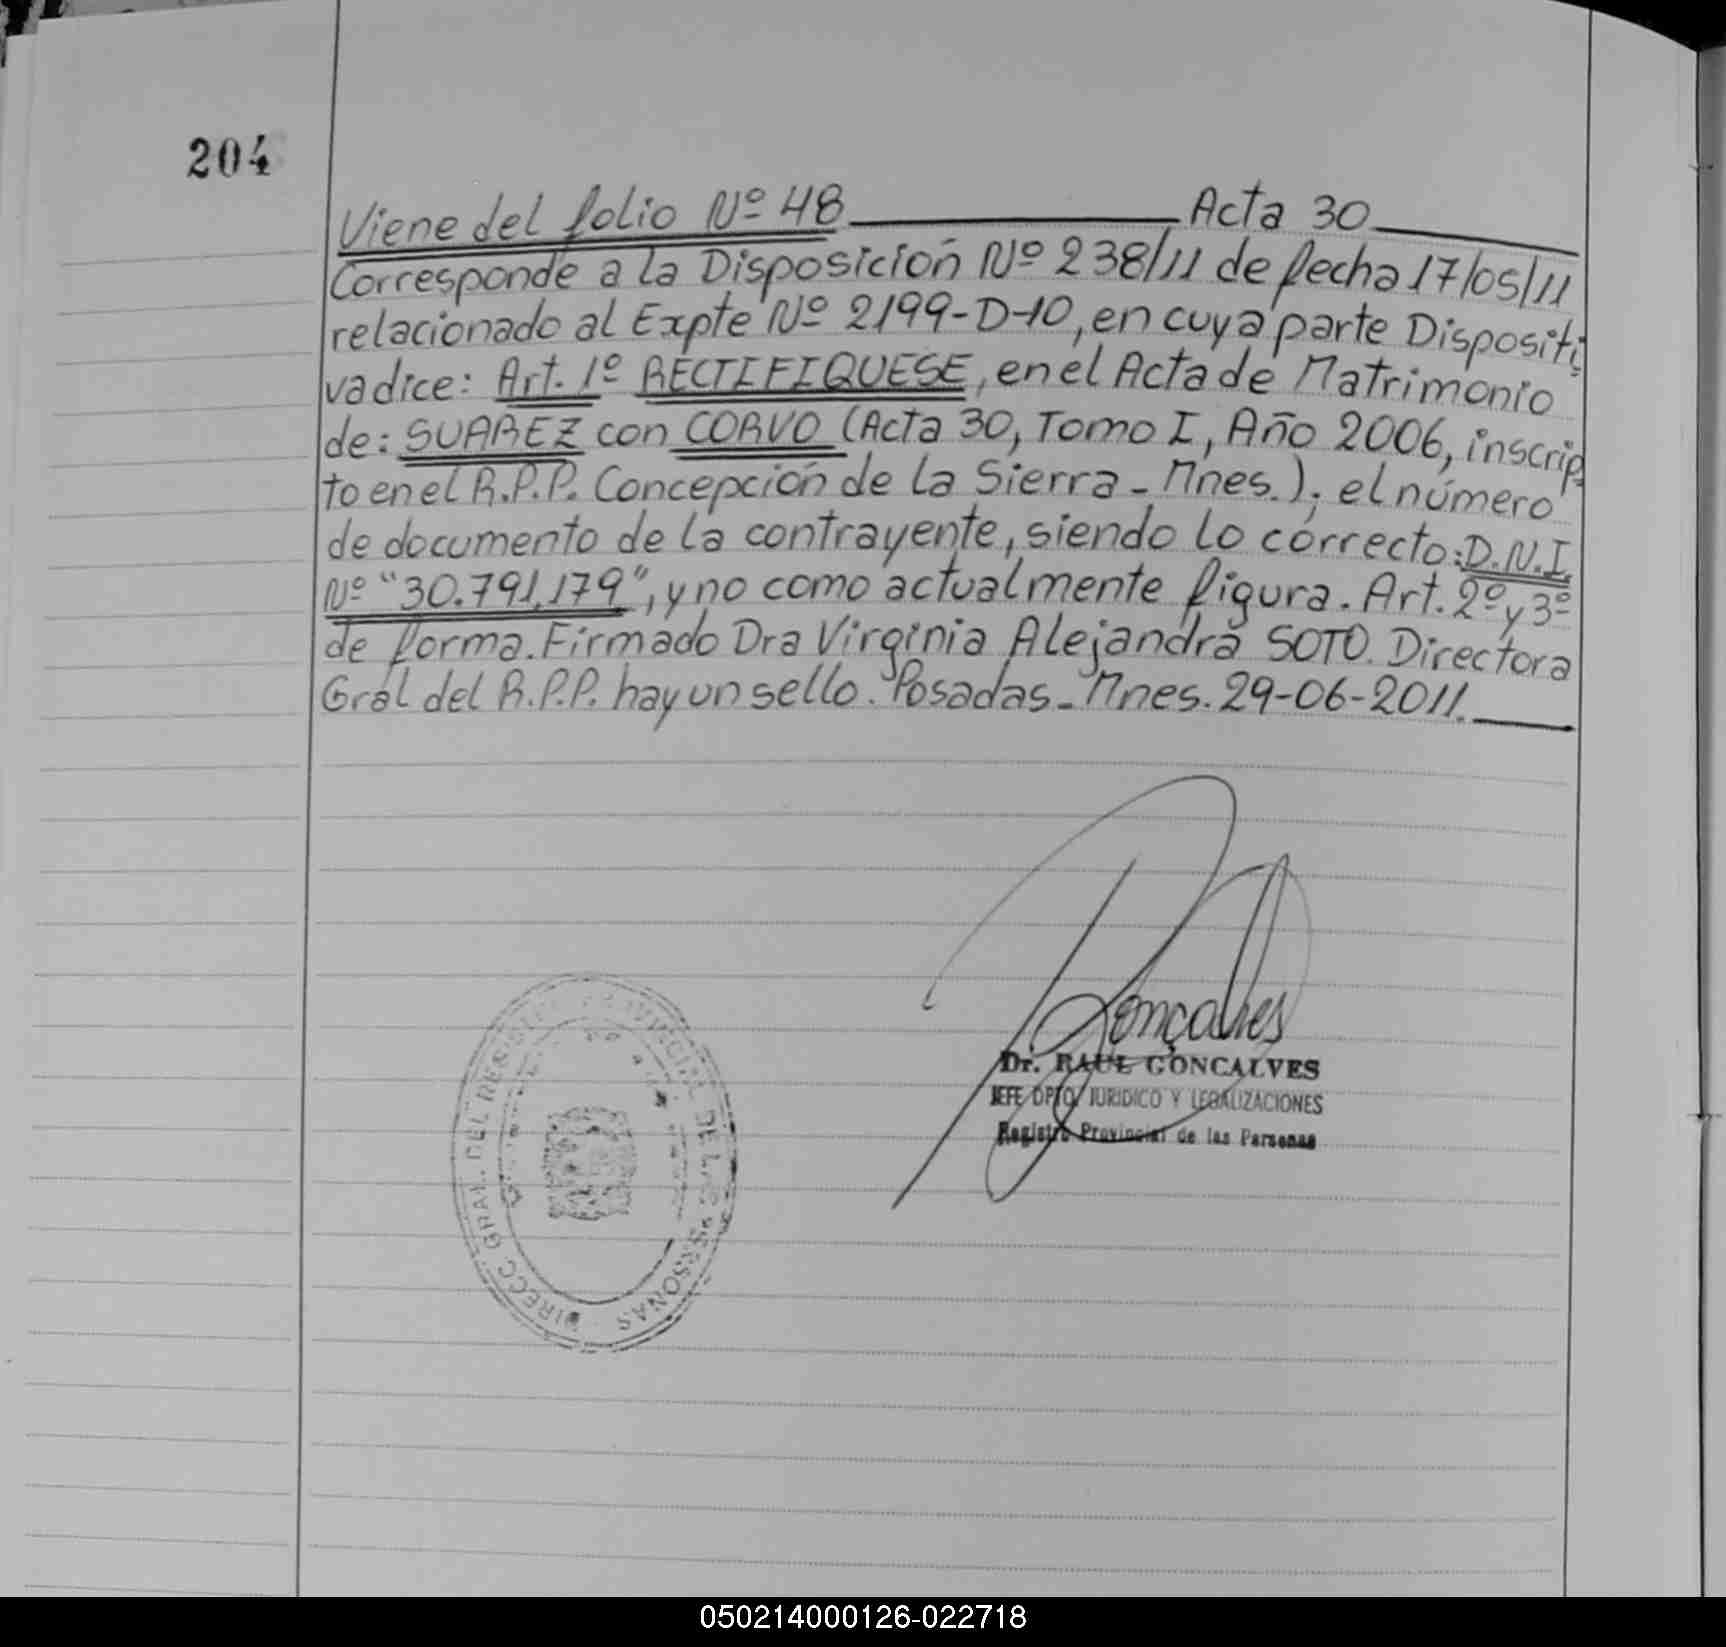 204
Viene del folio Nº 48 Acta 30
Corresponde a la Disposición Nº 238/11 de fecha 17/05/11
relacionado al Expte Nº 2199-D-10, en cuya parte Dispositi
va dice: Art. 1º RECTIFIQUESE, en el Acta de Matrimonio
de: SUAREZ con CORVO (Acta 30, Tomo I, Año 2006, inscrip
to en el R.P.P. Concepción de la Sierra - Mnes.); el número
de documento de la contrayente, siendo lo correcto: D.N.I.
Nº "30.791.179", y no como actualmente figura. Art. 2º y 3º
de forma. Firmado Dra Virginia Alejandra SOTO. Directora
Gral del R.P.P. hay un sello. Posadas - Mnes. 29-06-2011.
Gonçalves
Dr. RAUL GONCALVES
JEFE DPTO. JURIDICO Y LEGALIZACIONES
Registro Provincial de las Personas
DIRECC. GRAL. DEL REGISTRO PROVINCIAL DE LAS PERSONAS
050214000126-022718